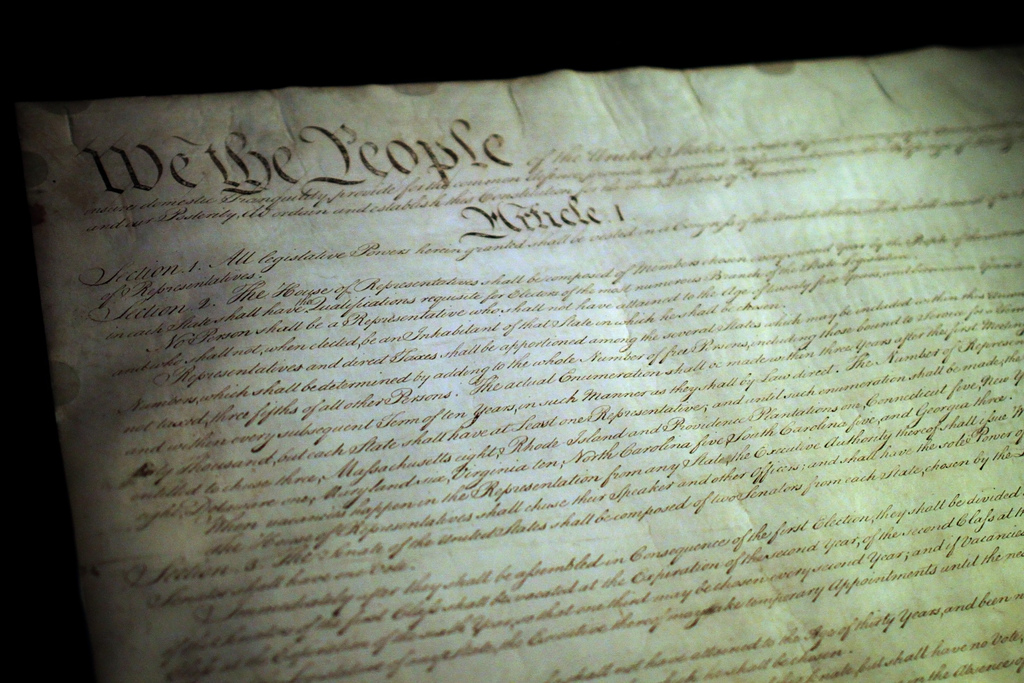 We the People of the United States
insure domestic Tranquility, provide for the common defence,
and our Posterity, do ordain and establish this Constitution for the United States of America.
Article. I.
Section. 1. All legislative Powers herein granted shall be vested in a Congress
of Representatives.
Section. 2. The House of Representatives shall be composed of Members chosen every second Year by the People of the
in each State shall have the Qualifications requisite for Electors of the most numerous Branch of the State Legislature.
No Person shall be a Representative who shall not have attained to the Age of twenty five Years,
and who shall not, when elected, be an Inhabitant of that State in which he shall be chosen.
Representatives and direct Taxes shall be apportioned among the several States which may be included within this Union,
Numbers, which shall be determined by adding to the whole Number of free Persons, including those bound to Service for a Term
not taxed, three fifths of all other Persons. The actual Enumeration shall be made within three Years after the first Meeting
and within every subsequent Term of ten Years, in such Manner as they shall by Law direct. The Number of Represen
thirty Thousand, but each State shall have at Least one Representative; and until such enumeration shall be made, the
entitled to chuse three, Massachusetts eight, Rhode Island and Providence Plantations one, Connecticut five, New Y
eight, Delaware one, Maryland six, Virginia ten, North Carolina five, South Carolina five, and Georgia three.
When vacancies happen in the Representation from any State, the Executive Authority thereof shall issue W
The House of Representatives shall chuse their Speaker and other Officers; and shall have the sole Power of
Section. 3. The Senate of the United States shall be composed of two Senators from each State, chosen by the
Senator shall have one Vote.
Immediately after they shall be assembled in Consequence of the first Election, they shall be divided
of the Senators of the first Class shall be vacated at the Expiration of the second Year, of the second Class at
Class at the Expiration of the sixth Year, so that one third may be chosen every second Year; and if Vacancies
Legislature of any State, the Executive thereof may make temporary Appointments until the ne
shall not have attained to the Age of thirty Years, and been
which he shall be chosen.
Senate, but shall have no Vote,
in the Absence of